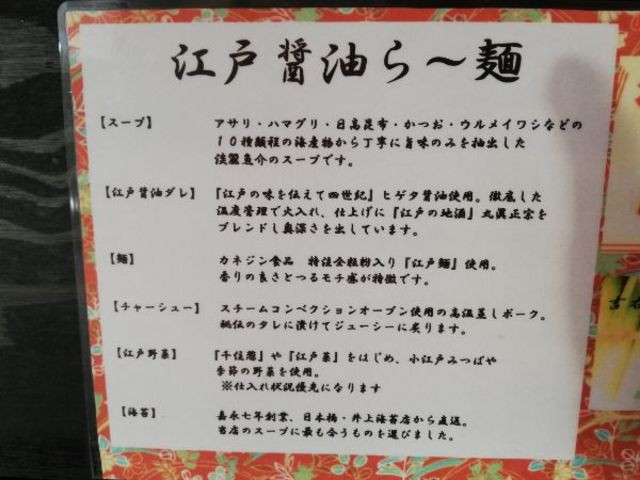 江戸醤油ら〜麺
【スープ】 アサリ・ハマグリ・日高昆布・かつお・ウルメイワシなどの
１０種類程の海産物から丁寧に旨味のみを抽出した
淡麗魚介のスープです。
【江戸醤油ダレ】 『江戸の味を伝えて四世紀』ヒゲタ醤油使用。徹底した
温度管理で火入れ、仕上げに『江戸の地酒』丸眞正宗を
ブレンドし奥深さを出しています。
【麺】 カネジン食品　特注全粒粉入り『江戸麺』使用。
香りの良さとつるモチ感が特徴です。
【チャーシュー】 スチームコンベクションオーブン使用の高温蒸しポーク。
秘伝のタレに漬けてジューシーに炙ります。
【江戸野菜】 『千住葱』や『江戸菜』をはじめ、小江戸みつばや
季節の野菜を使用。
※仕入れ状況優先になります
【海苔】 嘉永七年創業、日本橋・井上海苔店から直送。
当店のスープに最も合うものを選びました。